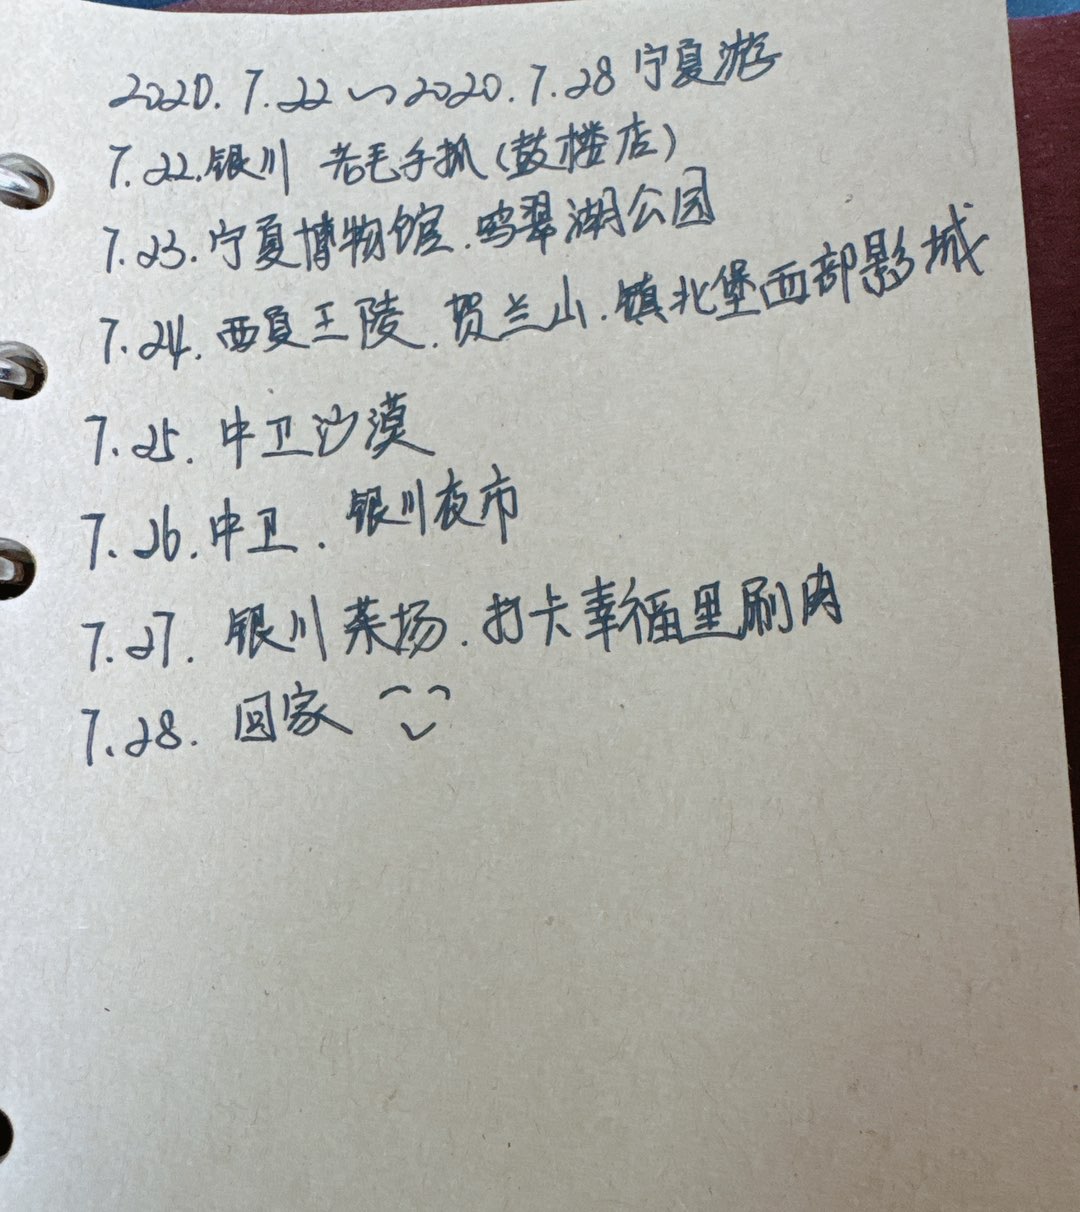 2020.7.22~2020.7.28 宁夏游
7.22.银川 老毛手抓(鼓楼店)
7.23.宁夏博物馆.鸣翠湖公园
7.24.西夏王陵.贺兰山.镇北堡西部影城
7.25.中卫沙漠
7.26.中卫.银川夜市
7.27.银川菜场.打卡幸福里刷肉
7.28.回家